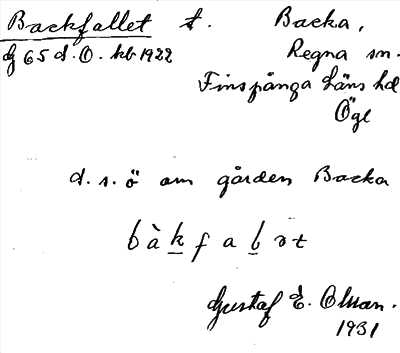 Backfallet t. Backa,
dg 65 d. O. kb 1922 Regna sn.
Finspånga läns hd
Ögl
d. s. ö om gården Backa
b à k f a
Gustaf E.
1931